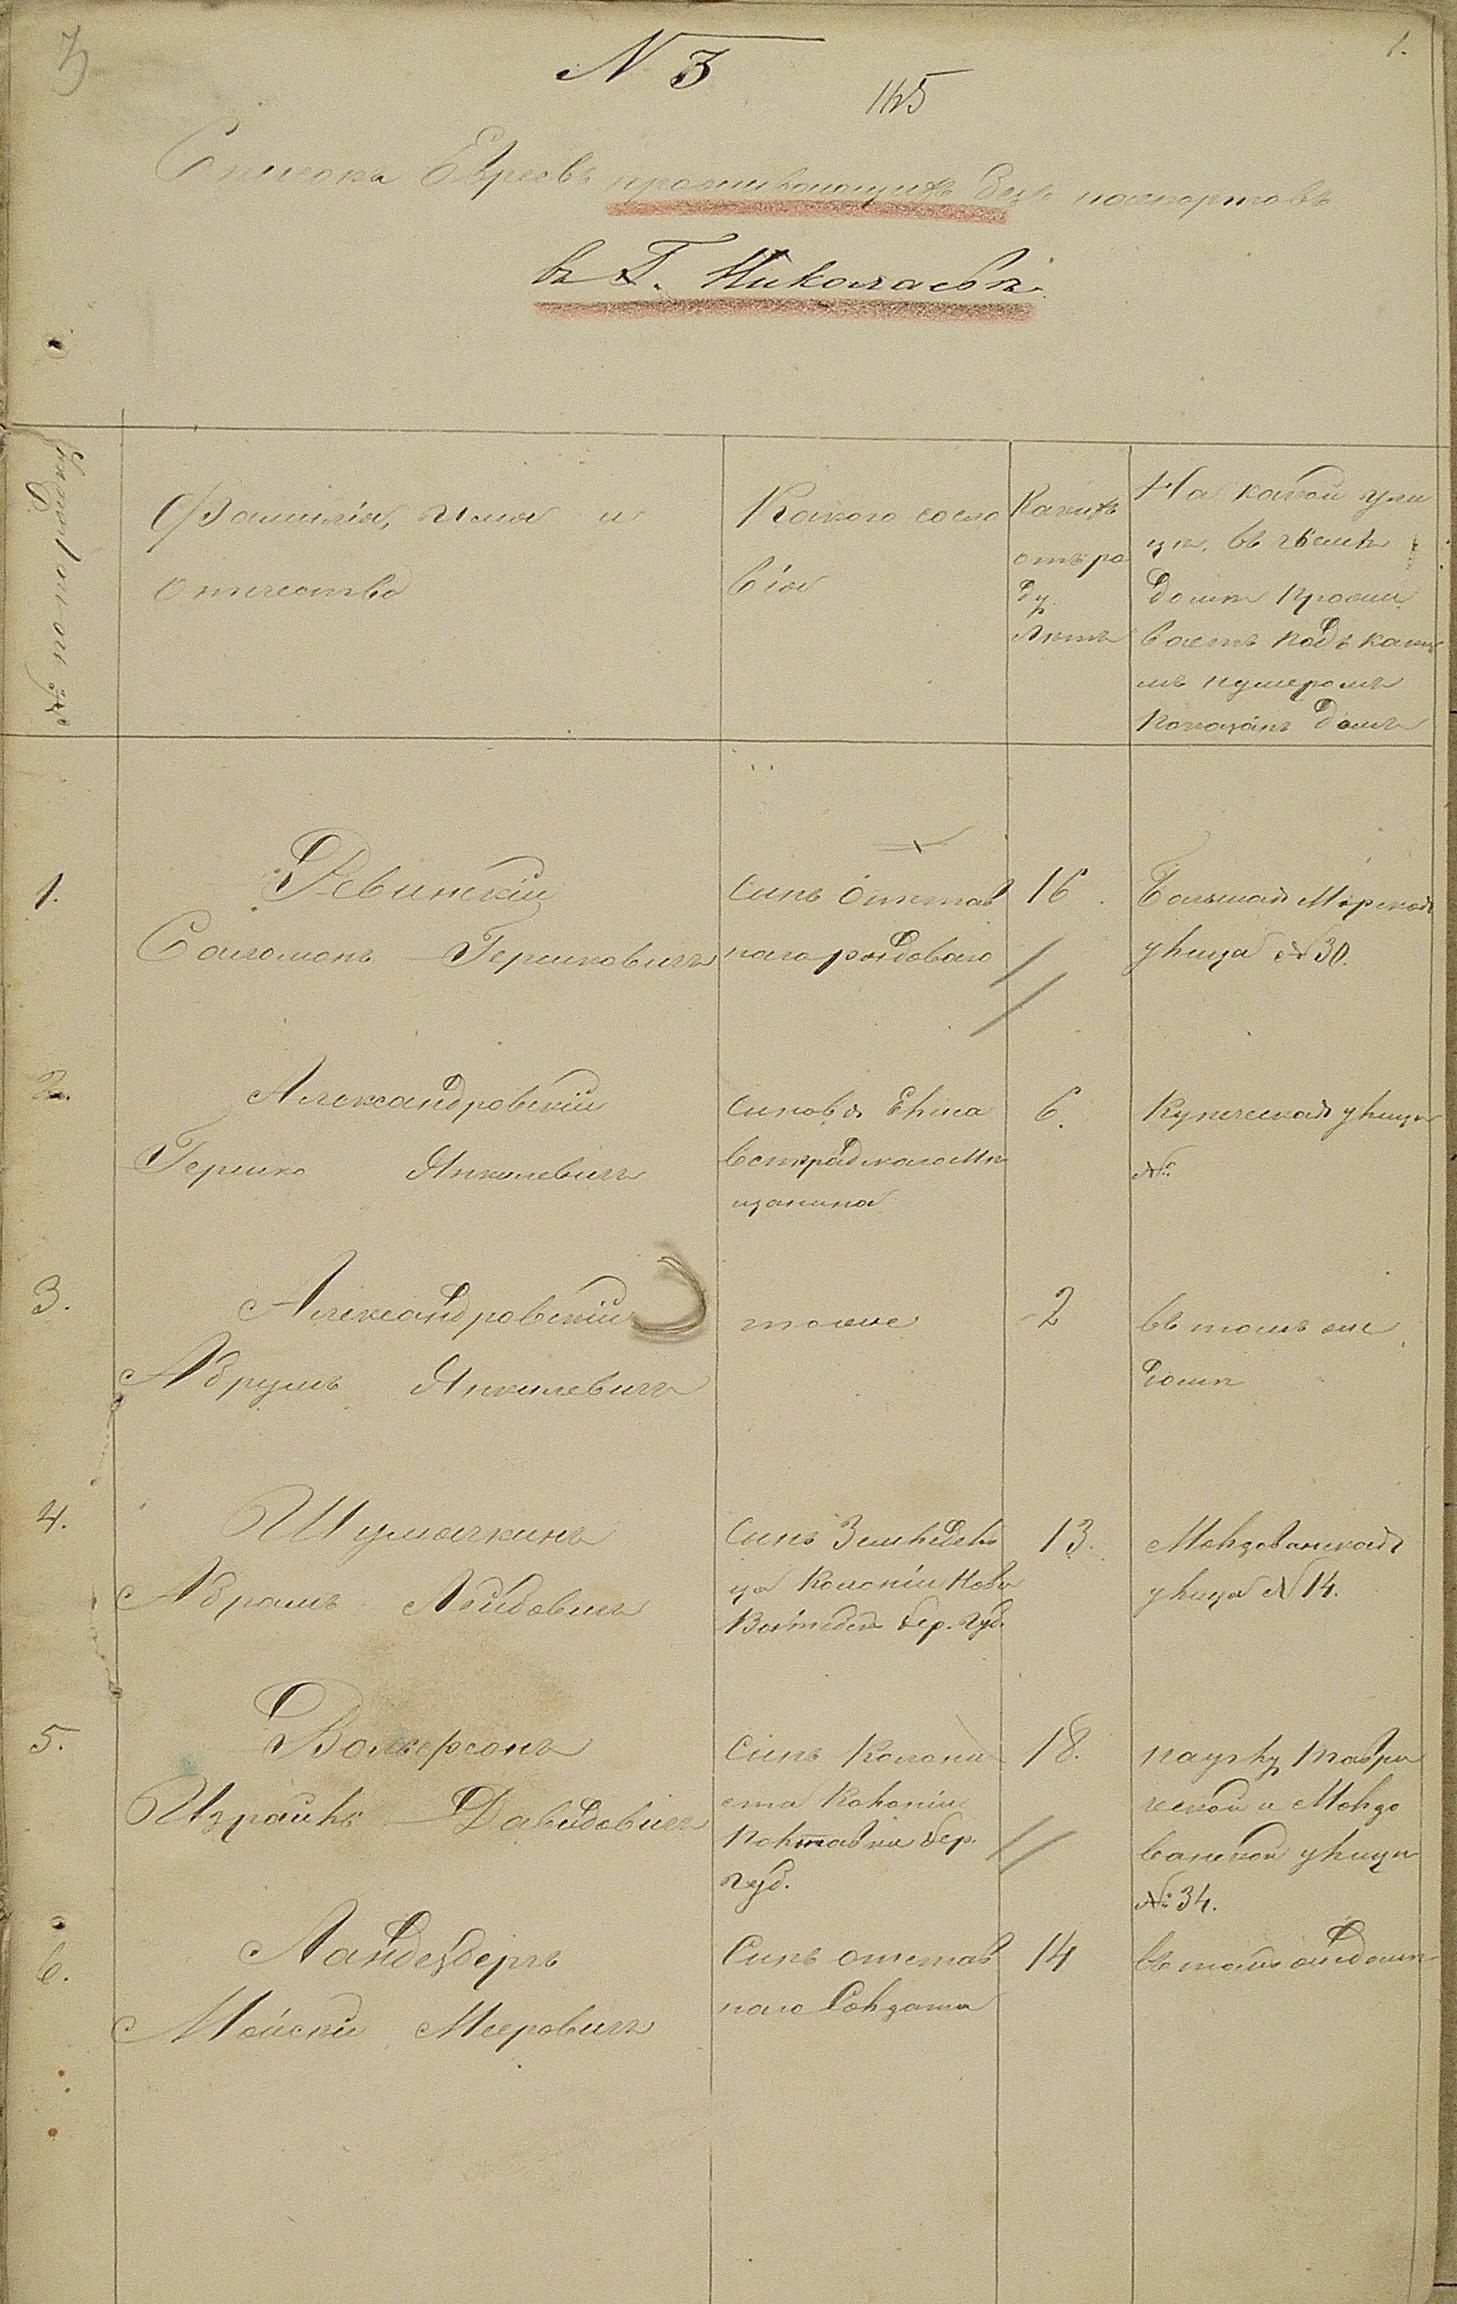 3
N 3
1.
145
Списокъ Евреевъ проживающихъ безъ паспортовъ
въ Г. Николаевѣ.
Фамилія, Имя и
отчество
Какого сосло
вія
Какихъ
отъ ро
ду
лѣтъ
На какой ули
цѣ, въ чьемъ
домѣ прожи
ваетъ подъ каки
мъ нумеромъ
показанъ домъ
1.
Ревинскій
Саломонъ Гершковичъ
Сынъ отстав
наго рядоваго
16
Большая Морская
улица № 30.
2.
Александровскій
Гершко Янкилевичъ
сыновья Елиса
ветградскаго мѣ
щанина
6.
Купеческая улица
№
3.
Александровскій
Абрумъ Янкилевичъ
тоже
2
въ томъ же
домѣ
4.
Шумячкинъ
Абрамъ Лейбовичъ
Сынъ Земледѣль
ца Колоніи Ново
Витебск Хер. губ.
13.
Молдованская
улица № 14.
5.
Вольфсонъ
Израиль Давидовичъ
Сынъ Колони
ста Колоніи
Полтавки Хер.
губ.
18.
на углу Таври
ческой и Молдо
ванской улицы
№ 34.
6.
Ландезбергъ
Мойсей Мееровичъ
Сынъ отстав
наго Солдата
14
въ томъ же домѣ